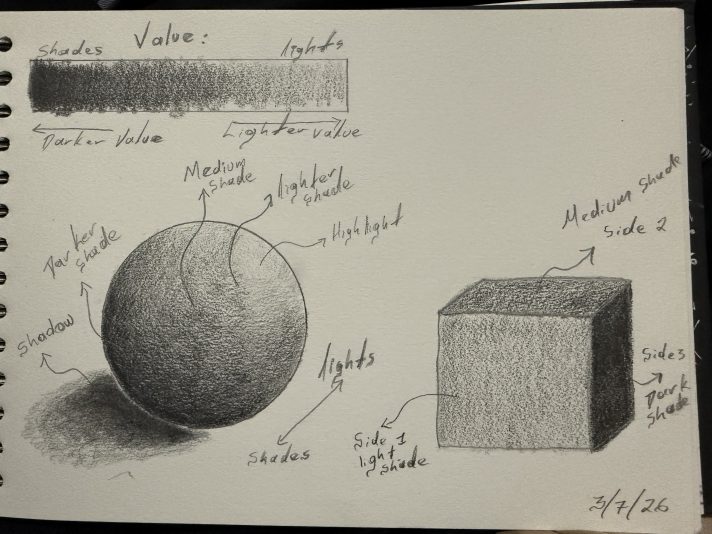 Value:
Shades
lights
Darker Value
Lighter value
Medium
Shade
lighter
shade
Highlight
Darker
shade
Shadow
lights
Shades
Medium Shade
Side 2
Side 1
light
shade
Side3
Dark
Shade
3/7/26